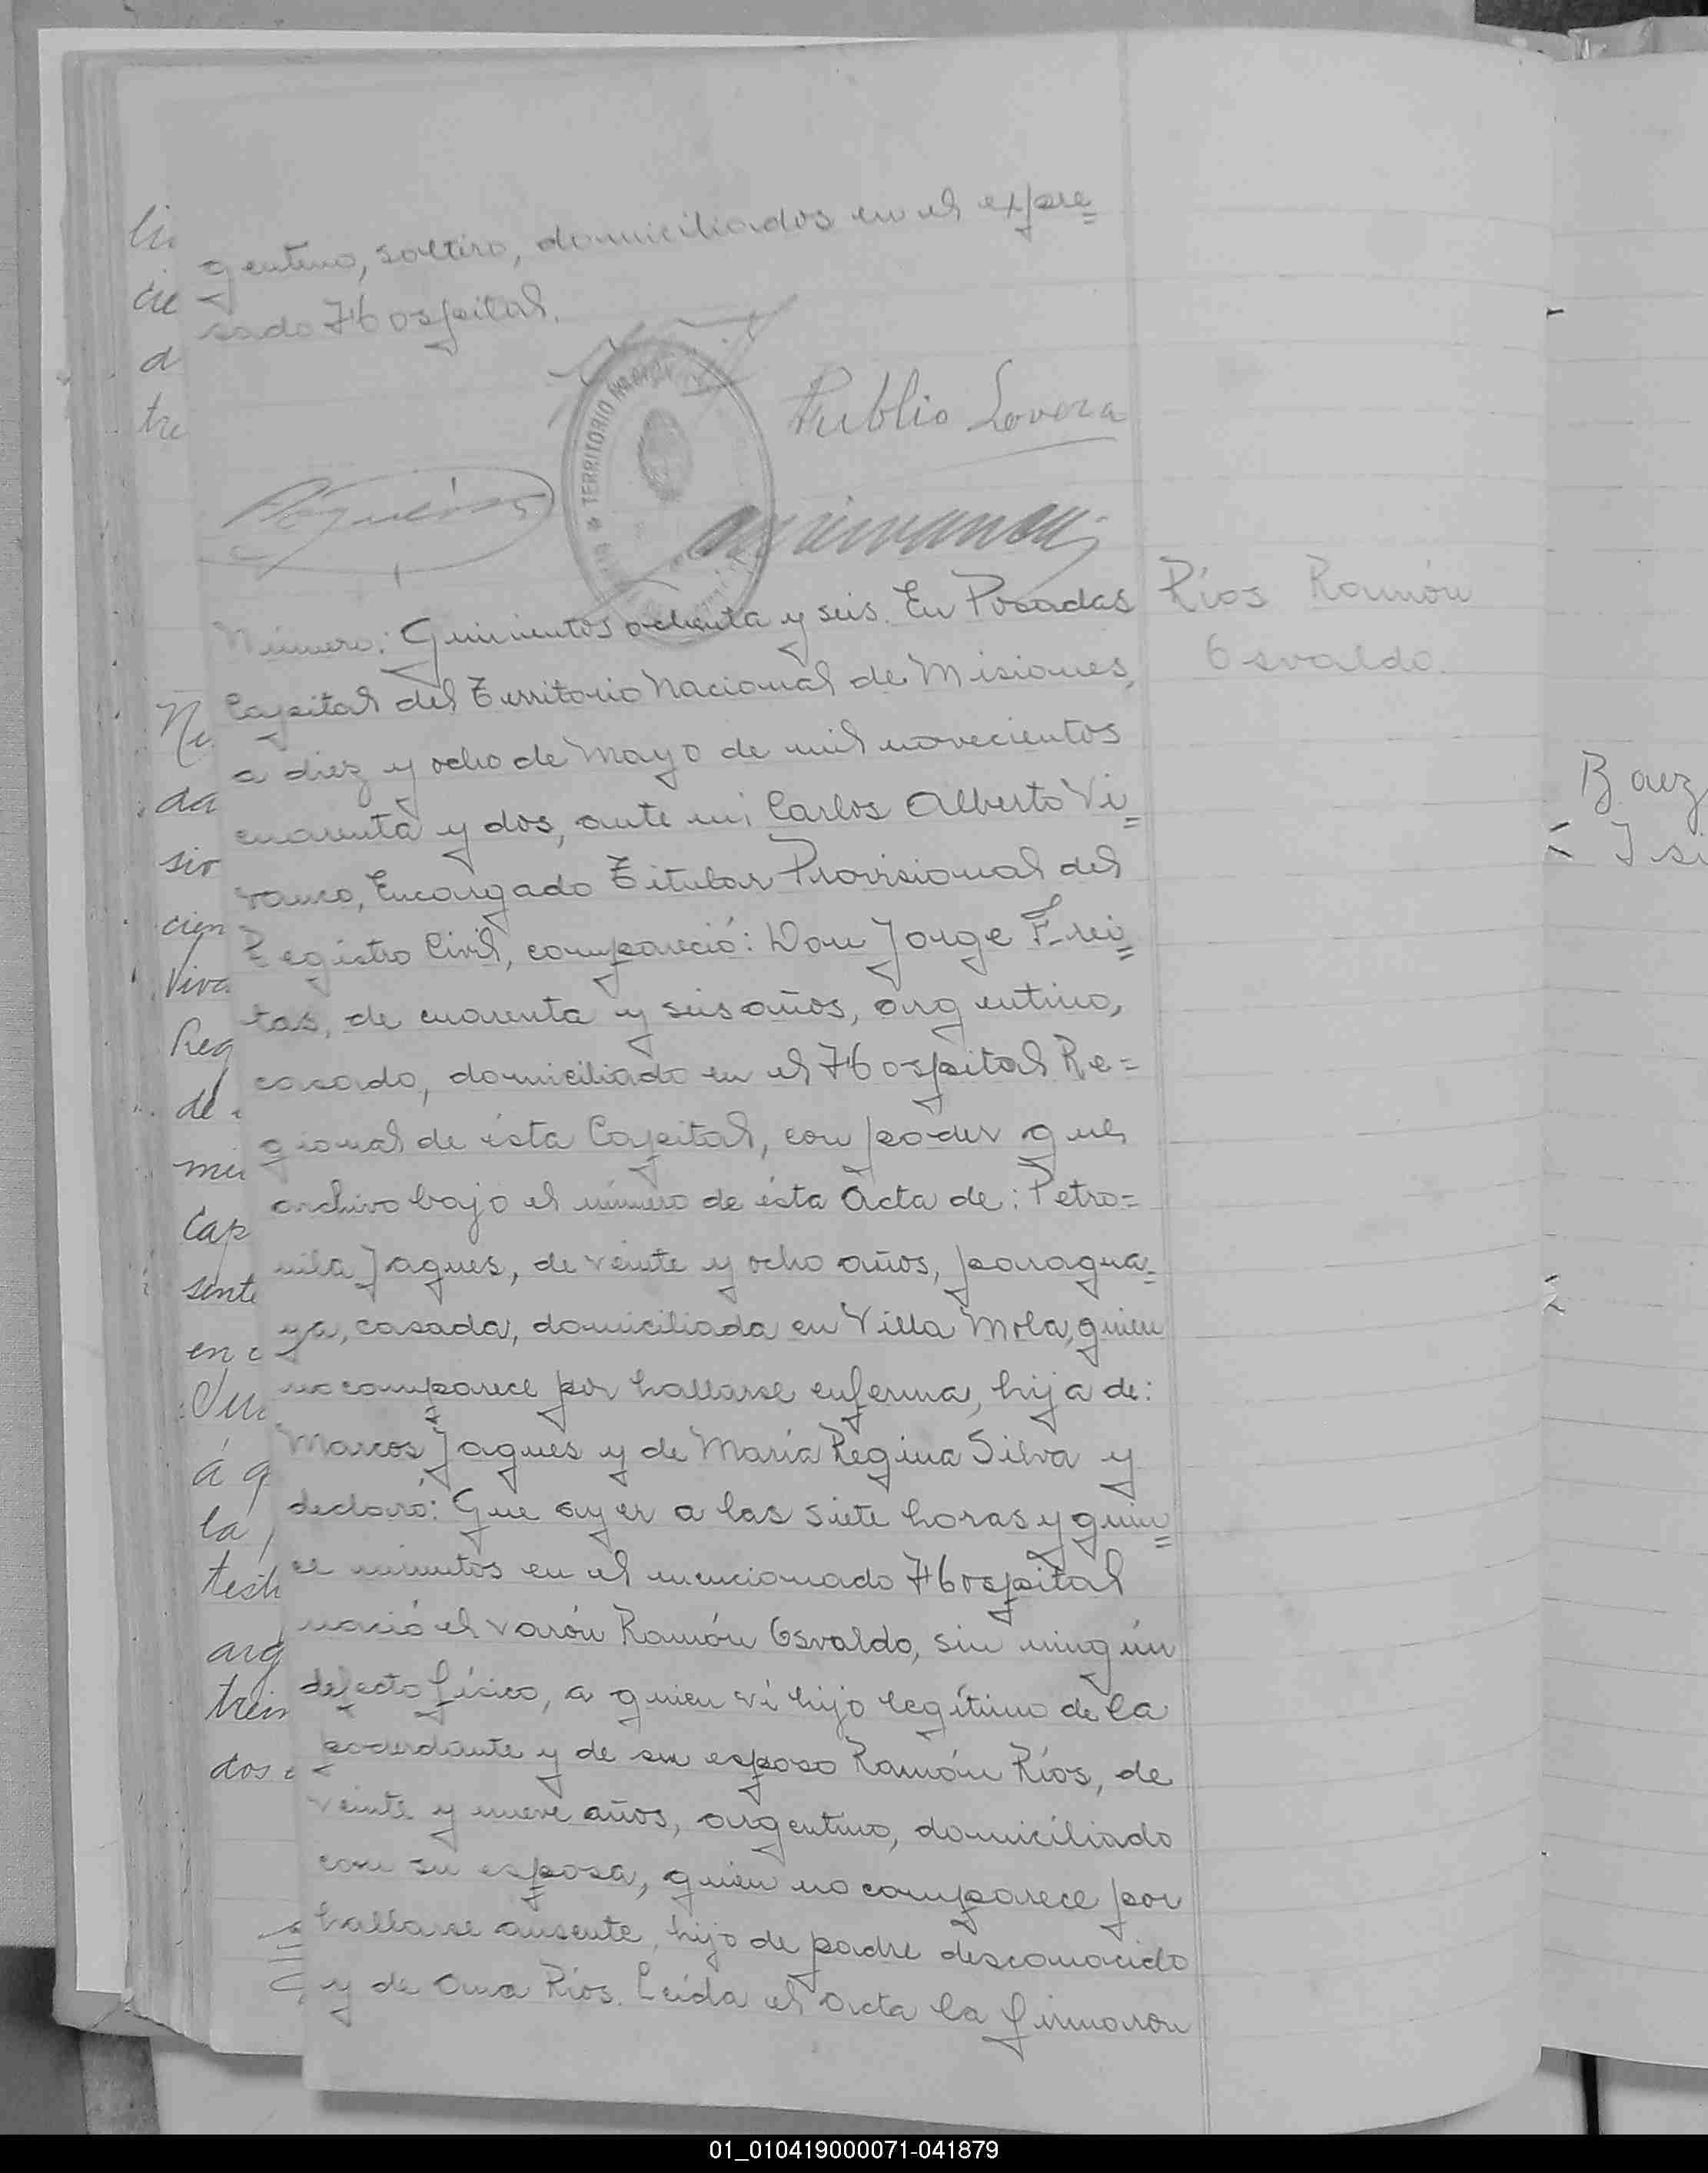 gentino, soltero, domiciliados en el expre=
sado Hospital.
TERRITORIO NACION
Publio Lovera
Número: Quinientos ochenta y seis. En Posadas
Capital del Territorio Nacional de Misiones,
a diez y ocho de Mayo de mil novecientos
cuarenta y dos, ante mi Carlos Alberto Vi=
vanco, Encargado Titular Provisional del
Registro Civil, compareció: Don Jorge Frei=
tas, de cuarenta y seis años, argentino,
casado, domiciliado en el Hospital Re=
gional de ésta Capital, con poder que
archivo bajo el número de ésta Acta de: Petro=
nila Jaques, de veinte y ocho años, paragua=
ya, casada, domiciliada en Villa Mola, quien
no comparece por hallarse enferma, hija de:
Marcos Jaques y de María Regina Silva y
declaró: Que ayer a las siete horas y quin=
ce minutos en el mencionado Hospital
nació el varón Ramón Osvaldo, sin ningún
defecto físico, a quien ví hijo legítimo de la
poderdante y de su esposo Ramón Ríos, de
veinte y nueve años, argentino, domiciliado
con su esposa, quien no comparece por
hallarse ausente, hijo de padre desconocido
y de Ana Ríos. Leída el acta la firmaron
Ríos Ramón
Osvaldo.
cie
d
tre
da
sio
cien
Viva
Reg
de
Cap
sente
en
á q
la
test
arg
trein
dos
Baez
01_010419000071-041879